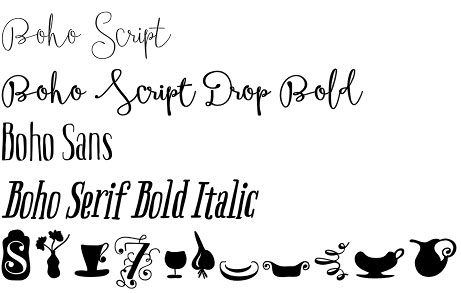 Boho Script
Boho Script Drop Bold
Boho Sans
Boho Serif Bold Italic
S 7